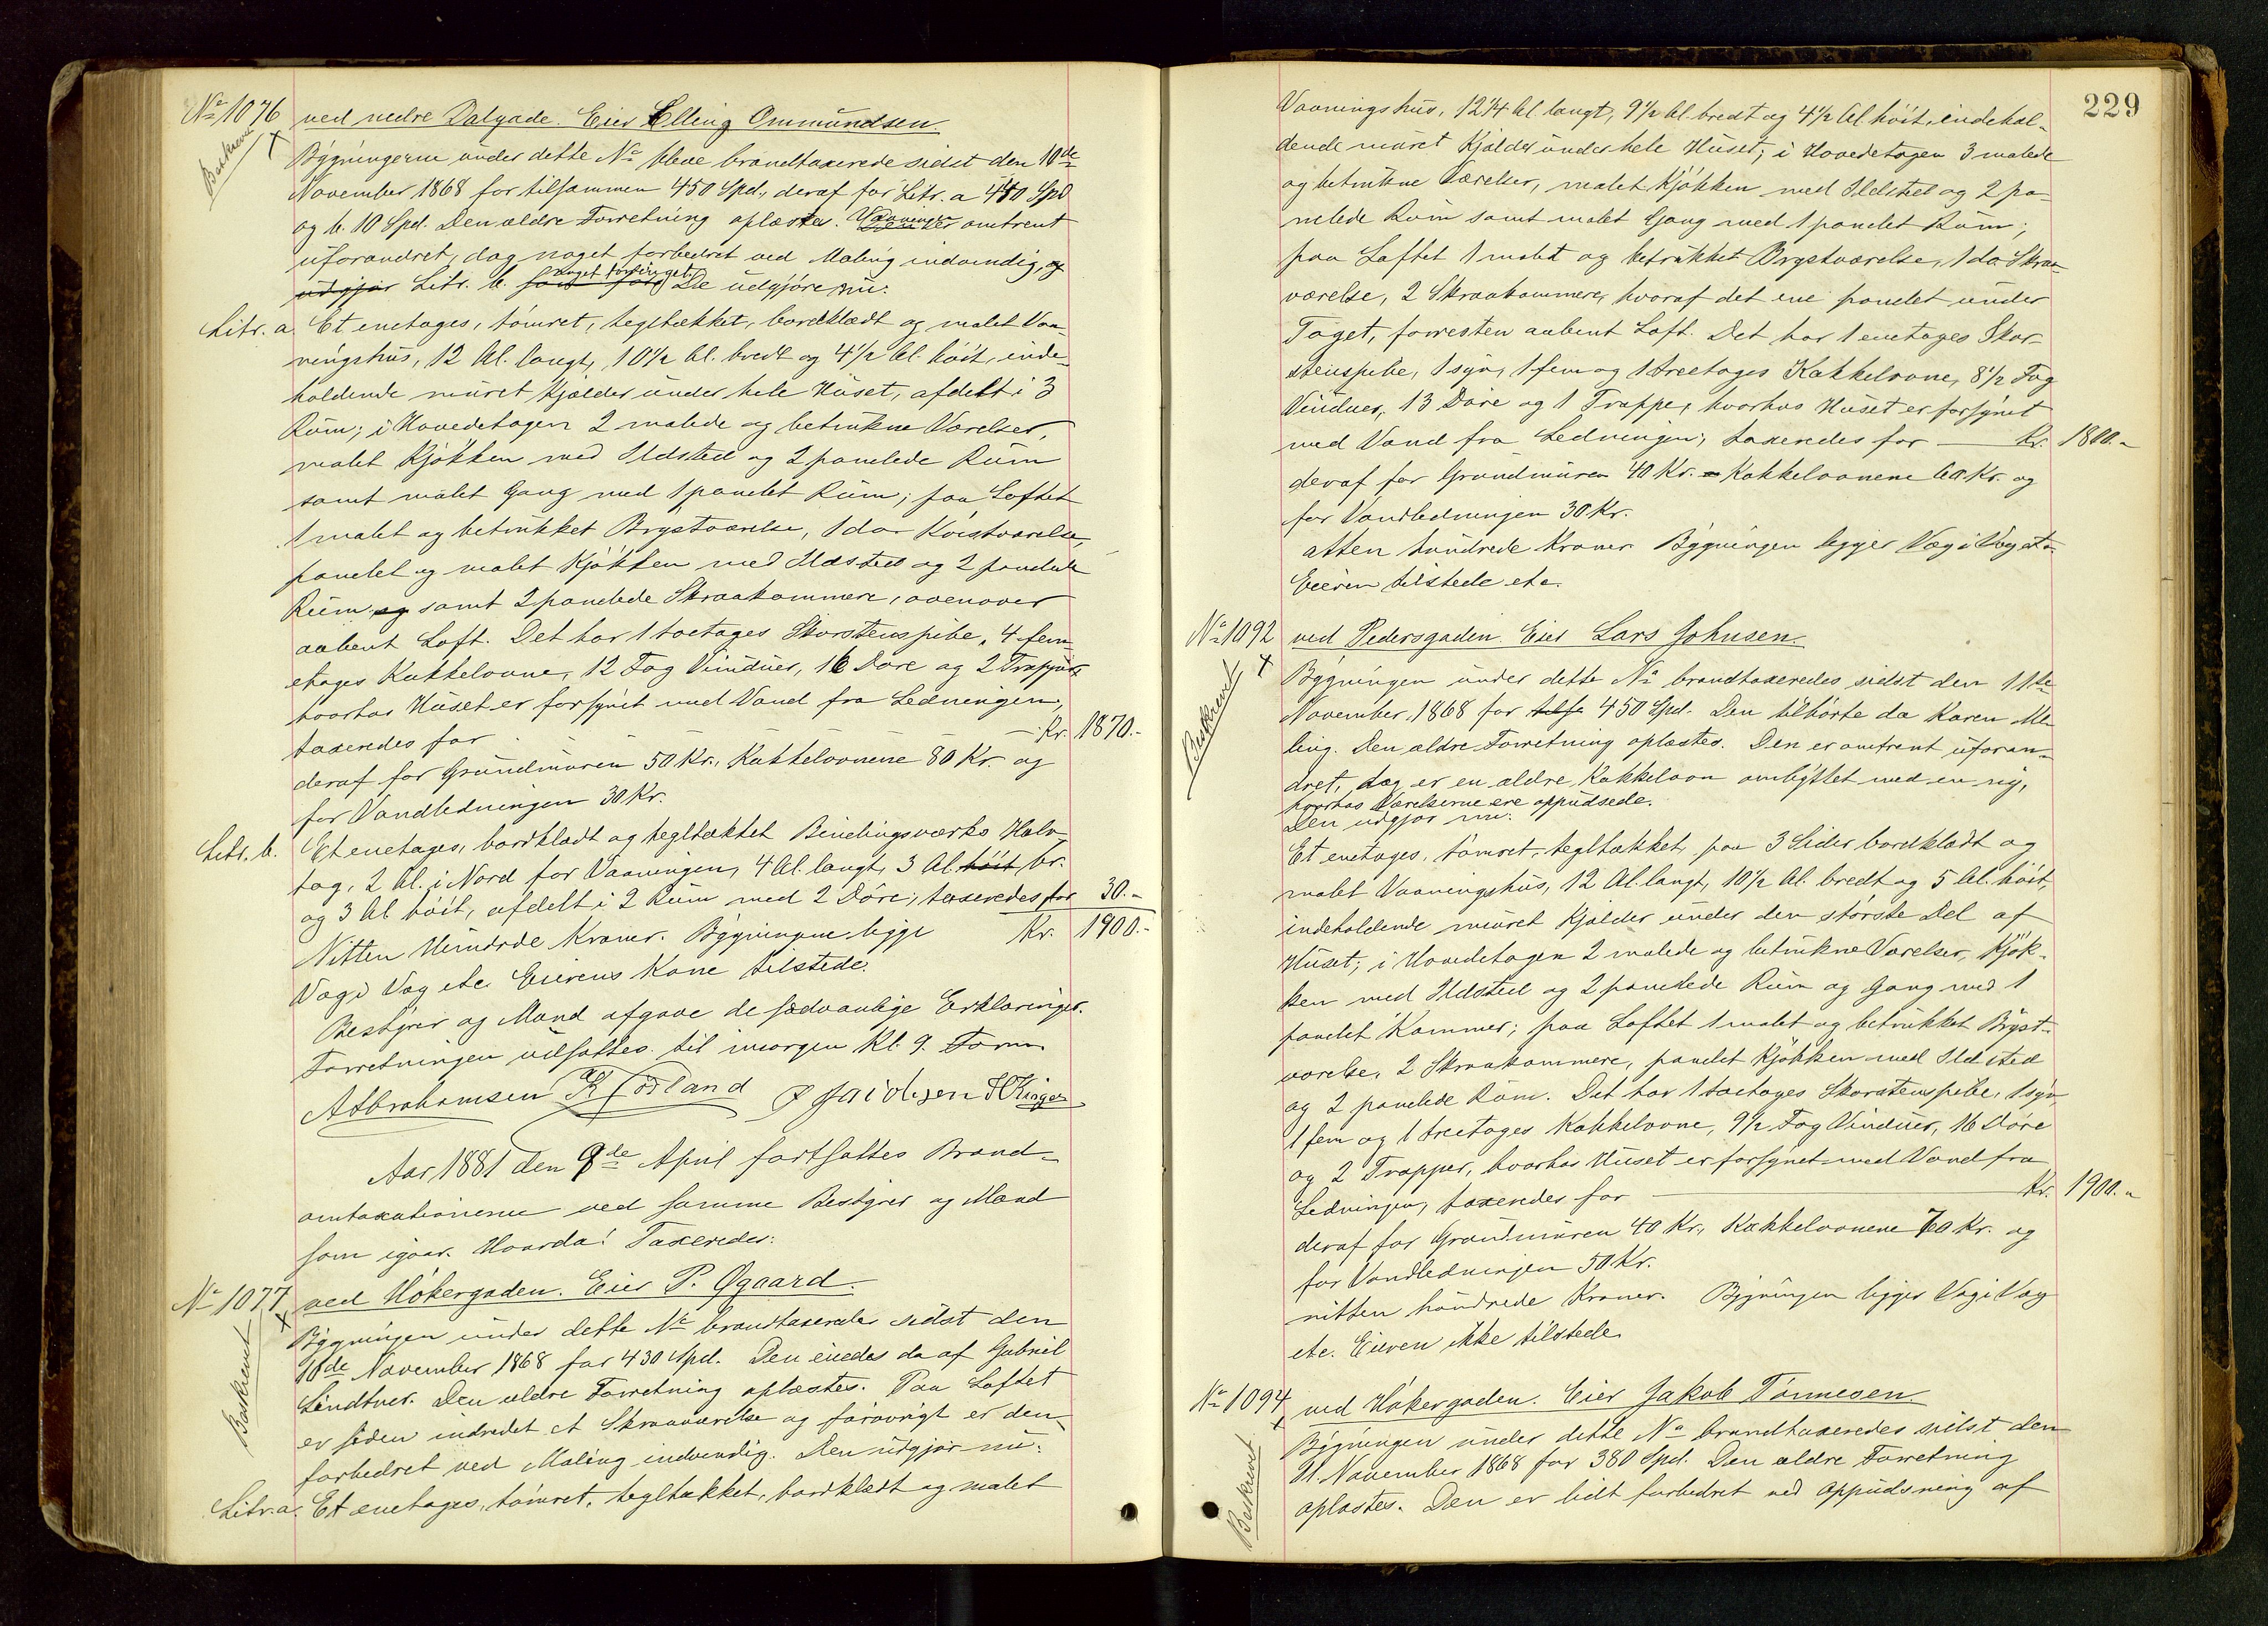 No 1076 ved nedre Dalgade. Eier Elling Ommundsen.
Beskrevet
Bygningerne under dette No bleve brandtaxerede sidst den 10de
November 1868 for tilsammen 450 Spd., deraf for Litr. a 440 Spd
og b. 10 Spd. Den ældre Forretning oplæstes. Vaaningen er omtrent
uforandret, dog noget forbedret ved Maling indvendig, og
udgjør Litr. b. noget forringet. De udgjøre nu:
Litr. a. Et enetages, tømret, tegltækket, bordklædt og malet Vaa-
ningshus, 12 Al. langt, 10 1/2 Al. bredt og 4 1/2 Al. høit, inde-
holdende muret Kjælder under hele Huset, afdelt i 3
Rum; i Hovedetagen 2 malede og betrukne Værelser,
malet Kjøkken med Ildsted og 2 panelede Rum
samt malet Gang med 1 panelet Rum; paa Loftet
1 malet og betrukket Brystværelse, 1 do Kvistværelse,
panelet og malet Kjøkken med Ildsted og 2 panelede
Rum og samt 2 panelede Skraakammere, ovenover
aabent Loft. Det har 1 toetages Skorstenspibe, 4 fem-
etages Kakkelovne, 12 Fag Vinduer, 16 Døre og 2 Trapper,
hvorhos Huset er forsynet med Vand fra Ledningen,
taxeredes for Kr. 1870.-
deraf for Grundmuren 50 Kr., Kakkelovnene 80 Kr. og
for Vandledningen 30 Kr.
Litr. b. Et enetages, bordklædt og tegltækket Bindingsværks Halv-
tag, 2 Al. i Nord for Vaaningen, 4 Al. langt, 3 Al. høit br.
og 3 Al høit, afdelt i 2 Rum med 2 Døre; taxeredes for 30.-
Nitten Hundrede Kroner. Bygningerne ligge Kr. 1900.-
Væg i Væg etc. Eierens Kone tilstede.
Bestyrer og Mænd afgave de sædvanlige Erklæringer.
Forretningen udsattes til imorgen Kl. 9. Form.
A Abrahamsen Jacobsen
Aar 1881 den 9de April fortsattes Brand-
omtaxationerne ved samme Bestyrer og Mænd
som igaar. Hvorda: Taxeredes:
No 1077 ved Høkergaden. Eier P. Øgaard.
Beskrevet
Bygningen under dette No brandtaxeredes sidst den
10de November 1868 for 430 Spd. Den eiedes da af Gabriel
Lindtner. Den ældre Forretning oplæstes. Paa Loftet
er siden indredet et Skraaværelse og forøvrigt er den
forbedret ved Maling indvendig. Den udgjør nu:
Litr. a. Et enetages, tømret, tegltækket, bordklædt og malet
229
Vaaningshus, 12 1/4 Al. langt, 9 1/2 Al. bredt og 4 1/2 Al. høit, indehol-
dende muret Kjælder under hele Huset; i Hovedetagen 3 malede
og betrukne Værelser, malet Kjøkken med Ildsted og 2 pa-
nelede Rum samt malet Gang med 1 panelet Rum;
paa Loftet 1 malet og betrukket Brystværelse, 1 do Skraa-
værelse, 2 Skraakammere, hvoraf det ene panelet under
Taget, forresten aabent Loft. Det har 1 enetages Skor-
stenspibe, 1 syv, 1 fem og 1 treetages Kakkelovne, 8 1/2 Fag
Vinduer, 13 Døre og 1 Trappe, hvorhos Huset er forsynet
med Vand fra Ledningen; taxeredes for Kr. 1800.-
deraf for Grundmuren 40 Kr. Kakkelovnene 60 Kr. og
for Vandledningen 30 Kr.
atten hundrede Kroner. Bygningen ligger Væg i Væg etc.
Eieren tilstede etc.
No 1092 ved Pedersgaden. Eier Lars Johnsen.
Beskrevet
Bygningen under dette No brandtaxeredes sidst den 11te
November 1868 for tilsa 450 Spd. Den tilhørte da Karen Me-
ling. Den ældre Forretning oplæstes. Den er omtrent uforan-
dret, dog er en ældre Kakkelovn ombyttet med en ny,
hvorhos Værelserne ere oppudsede.
Den udgjør nu:
Et enetages, tømret, tegltækket, paa 3 Sider bordklædt og
malet Vaaningshus, 12 Al. langt, 10 1/2 Al. bredt og 5 Al. høit,
indeholdende muret Kjælder under den største Del af
Huset; i Hovedetagen 2 malede og betrukne Værelser, Kjøk-
ken med Ildsted og 2 panelede Rum og Gang med 1
panelet Kammer; paa Loftet 1 malet og betrukket Bryst-
værelse, 2 Skraakammere, panelet Kjøkken med Ildsted
og 2 panelede Rum. Det har 1 toetages Skorstenspibe, 1 syv,
1 fem og 1 treetages Kakkelovne, 9 1/2 Fag Vinduer, 16 Døre
og 2 Trapper, hvorhos Huset er forsynet med Vand fra
Ledningen, taxeredes for Kr. 1900.-
deraf for Grundmuren 40 Kr., Kakkelovnene 70 Kr. og
for Vandledningen 50 Kr.
nitten hundrede Kroner. Bygningen ligger Væg i Væg
etc. Eieren ikke tilstede.
No 1094 ved Høkergaden. Eier Jakob Tønnesen.
Beskrevet
Bygningen under dette No brandtaxeredes sidst den
11. November 1868 for 380 Spd. Den ældre Forretning
oplæstes. Den er lidt forbedret ved Oppudsning af